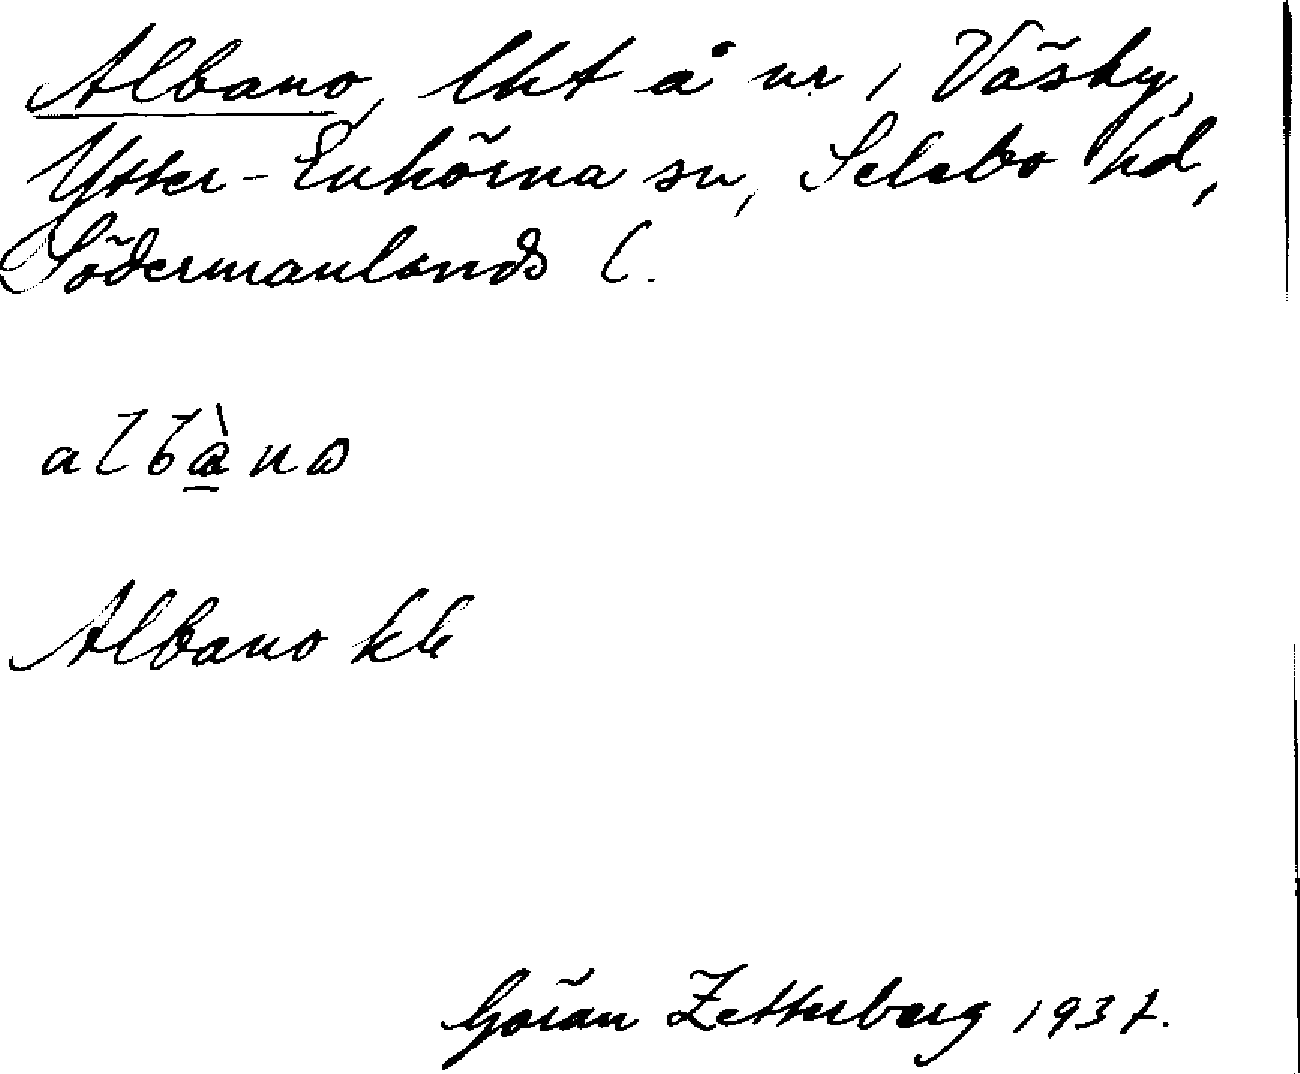 Albano, lht å nr 1 Väsby,
Ytter-Enhörna sn, Selebo hd,
Södermanlands l.
albàno
Albano kk
Göran Zetterberg 1937.